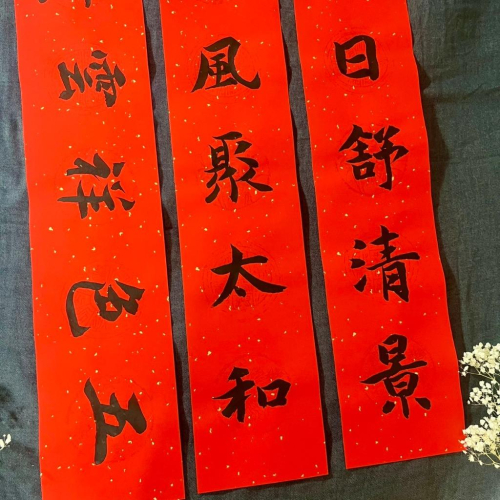 日舒清景
風聚太和
五色祥雲